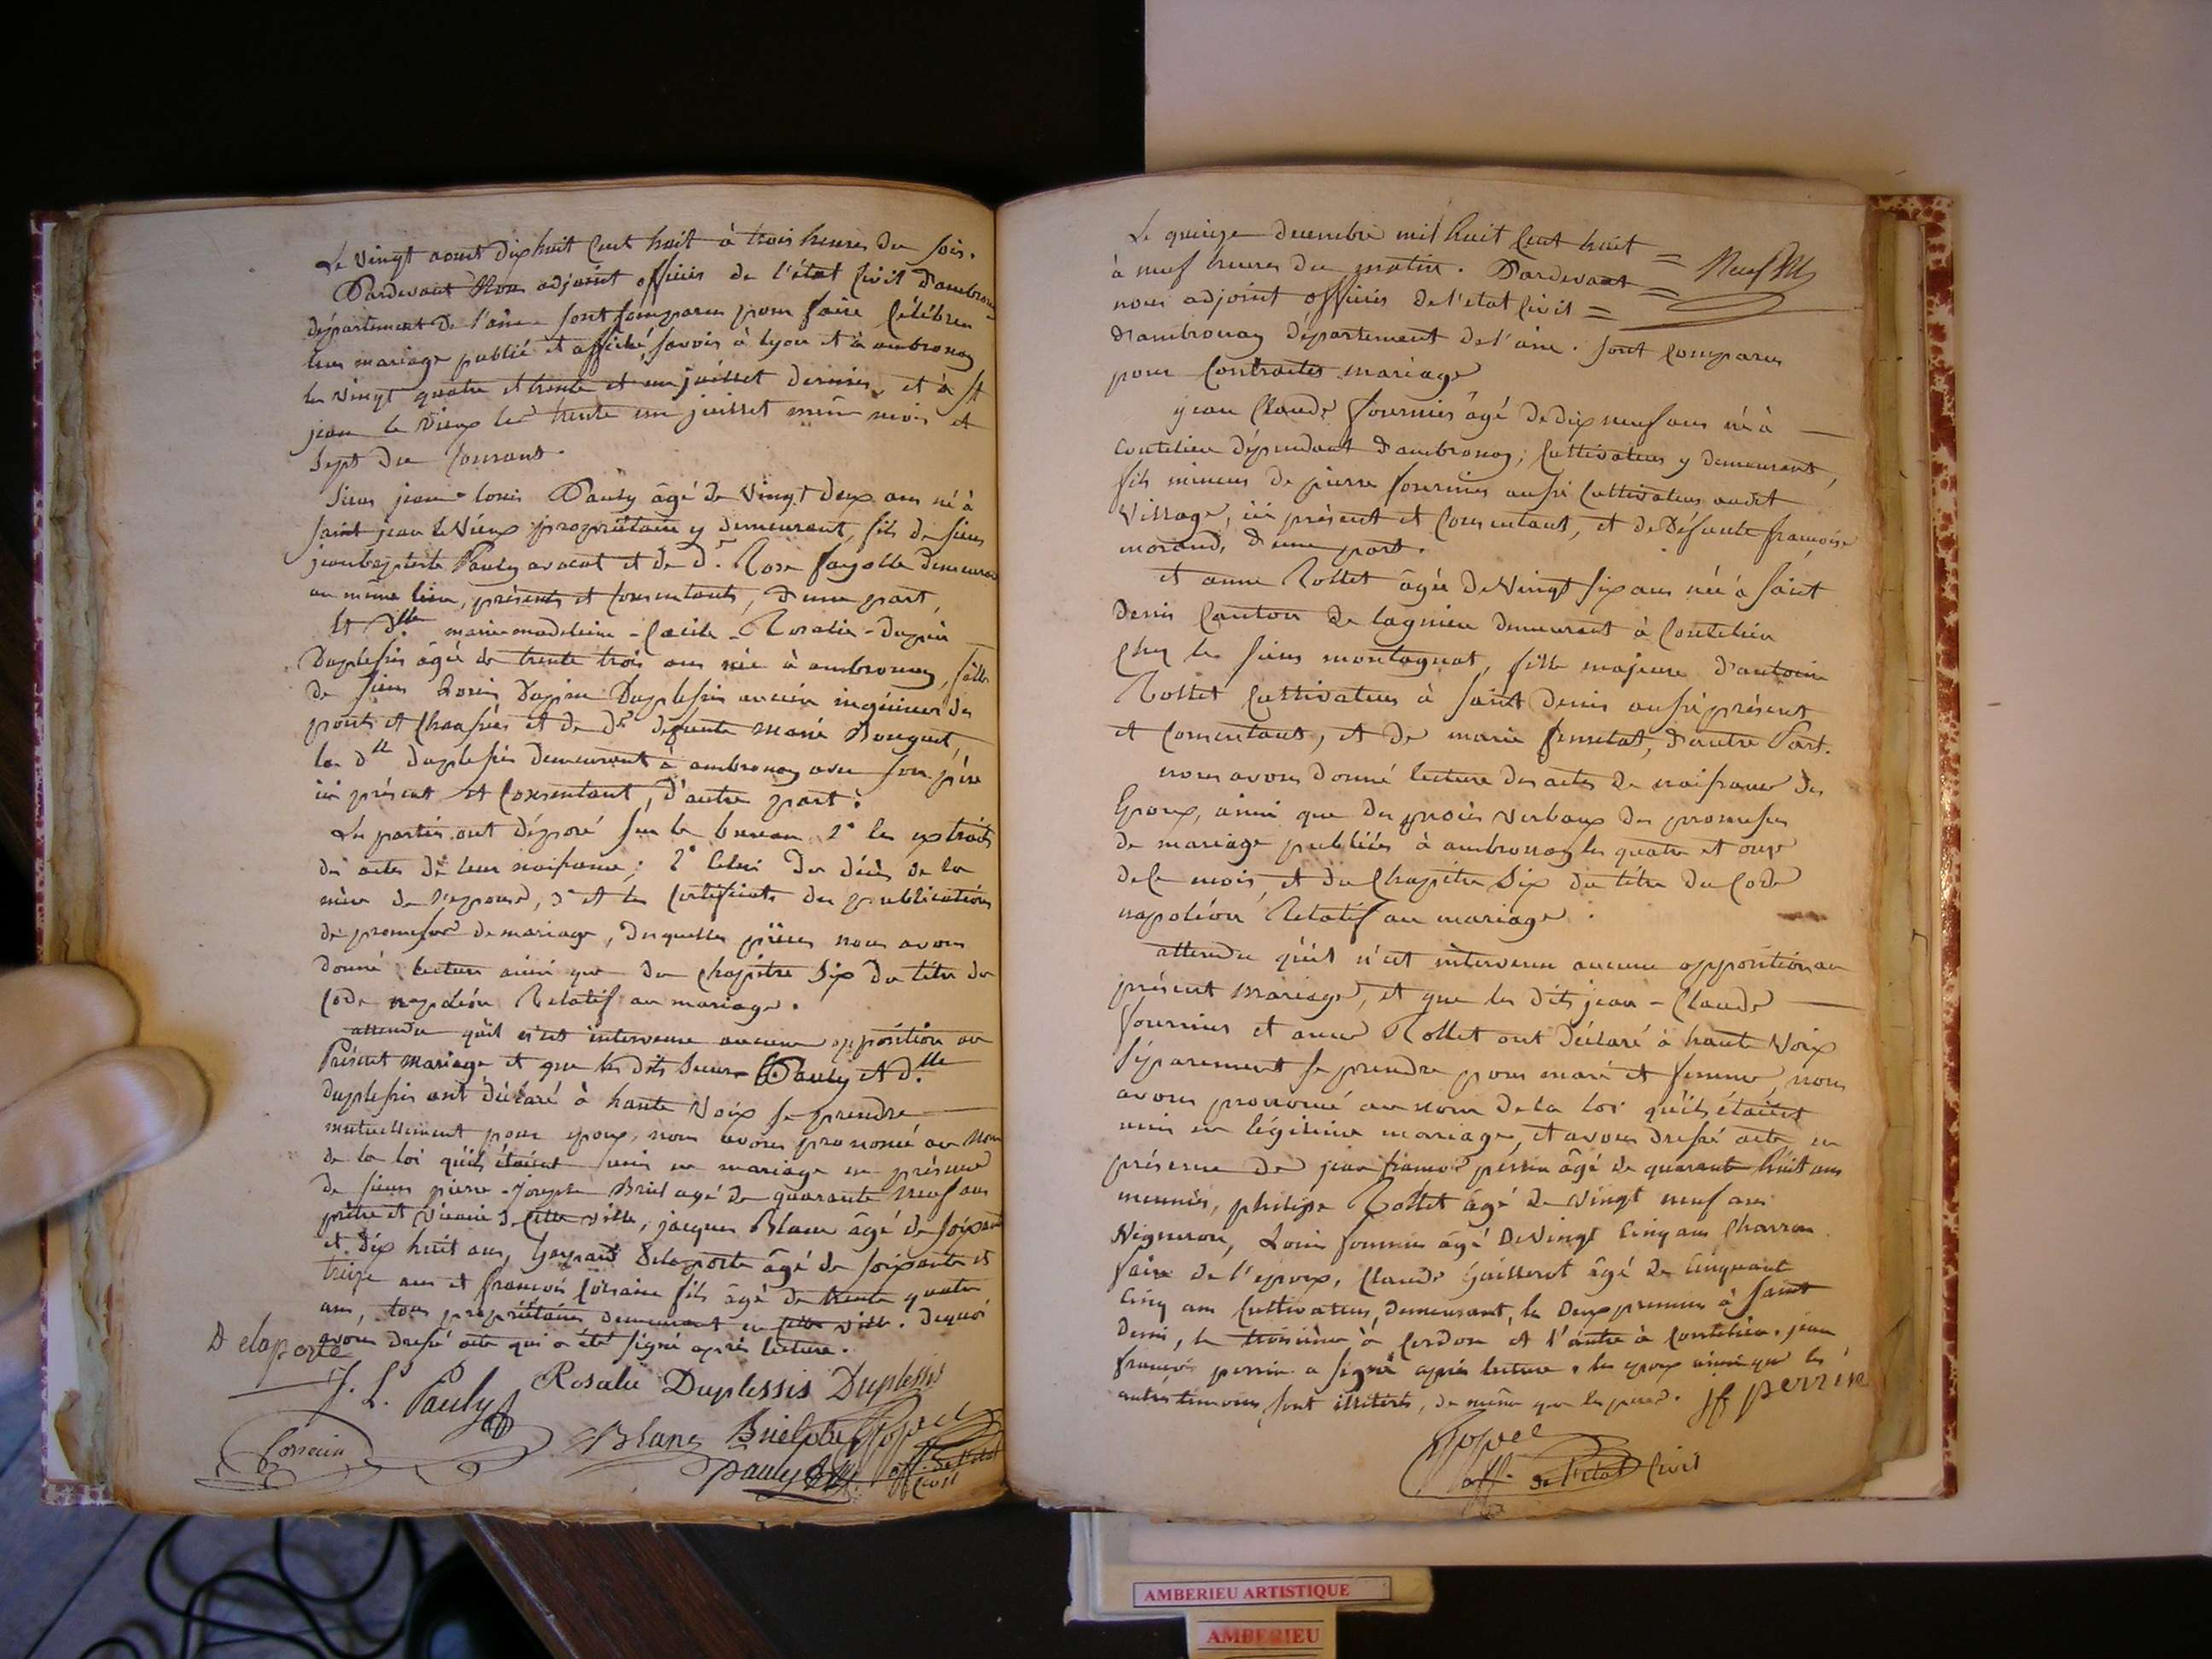 Le vingt aout dix huit cent huit à trois heures du soir.
Pardevant Nous adjoint officier de l'état Civil d'ambronay
département de l'ain sont comparus pour faire Célébrer
leur mariage publié et affiché, savoir à Lyon et à ambronay
les vingt quatre et trente et un juillet dernier, et à St
jean le vieux les trente un juillet même mois et
sept du Courant.
Sieur jean-louis Pauly âgé de vingt deux ans né à
saint jean le Vieux propriétaire y demeurant, fils de sieur
jeanbaptiste Pauly avocat et de de. Rose fayolle demeurant
au même lieu, présents et Consentants, d'une part,
Et dlle marie-madeleine-Cécile-Rosalie-dupin
Duplessis âgée de trente trois ans née à ambronay, fille
de sieur Louis Dupin Duplessis ancien ingénieur des
ponts et Chaussées et de de défunte Marie Bouquet,
la dlle duplessis demeurant à ambronay avec son père
ici présent et Consentant, d'autre part.
Les parties ont déposé sur le bureau 1° les extraits
des actes de leur naissance; 2° Celui du décès de la
mère de l'epouse, 3° et les Certificats des publications
de promesse de mariage, desquelles pièces nous avons
donné lecture ainsi que du Chapitre Six du titre du
Code napoléon Relatif au mariage.
attendu qu'il n'est intervenu aucune opposition au
Présent mariage et que les dits sieur Pauly et dlle
duplessis ont déclaré à haute voix se prendre
mutuellement pour epoux, nous avons prononcé au Nom
de la loi qu'ils étaient unis en mariage en présence
de sieur pierre-joseph Briel agé de quarante neuf ans
prêtre et vicaire de Cette ville, jacques Blanc âgé de soixante
et dix huit ans, Gaspard Delaporte âgé de soixante et
treize ans et françois fils âgé de trente quatre
ans, tous propriétaires demeurant en Cette ville. dequoi
avons dressé acte qui a été signé après lecture.
Delaporte
J. L. Pauly Rosalie Duplessis Duplessis
Blanc Briel ptre
pauly
off. de l'état
Civil
Le quinze decembre mil huit Cent huit =
à neuf heures du matin. Pardevant =
nous adjoint officier de l'etat Civil =
d'ambronay département de l'ain. sont Comparus
pour Contracter mariage
jean Claude fournier âgé de dix neuf ans né à
coutelieu dépendant d'ambronay, Cultivateur y demeurant,
fils mineur de pierre fournier aussi Cultivateur audit
Village, ici présent et Consentant, et de Défunte françoise
morand, d'une part.
et anne Rollet âgée de Vingt six ans née à saint
denis Canton de lagnieu demeurant à Coutelieu
Chez le sieur montagnat, fille majeure d'antoine
Rollet Cultivateur à saint denis aussi présent
et Consentant, et de marie d'autre Part.
nous avons donné lecture des actes de naissance des
Epoux, ainsi que des procès verbaux des promesses
de mariage publiées à ambronay les quatre et onze
de Ce mois, et du Chapitre Six du titre du Code
napoléon Relatif au mariage.
attendu qu'il n'est intervenu aucune opposition au
présent mariage, et que les dits jean-Claude
fournier et anne Rollet ont déclaré à haute Voix
séparement se prendre pour mari et femme, nous
avons prononcé au nom de la loi qu'ils étaient
unis en légitime mariage, et avons dressé acte en
présence de jean françois perrin âgé de quarante huit ans
meunier, philipe Rollet âgé de vingt neuf ans
Vigneron, Louis fournier âgé de Vingt Cinq ans Charron
frère de l'epoux, Claude Guillerot âgé de Cinquante
Cinq ans Cultivateur, demeurant, les deux premiers à saint
Denis, le troisième à Cerdon et l'autre à Coutelieu. jean
françois perrin a signé après lecture, les epoux ainsi que les
autres temoins sont illiterés, de même que les peres. jf perrin
off. de l'état Civil
AMBERIEU ARTISTIQUE
AMBERIEU